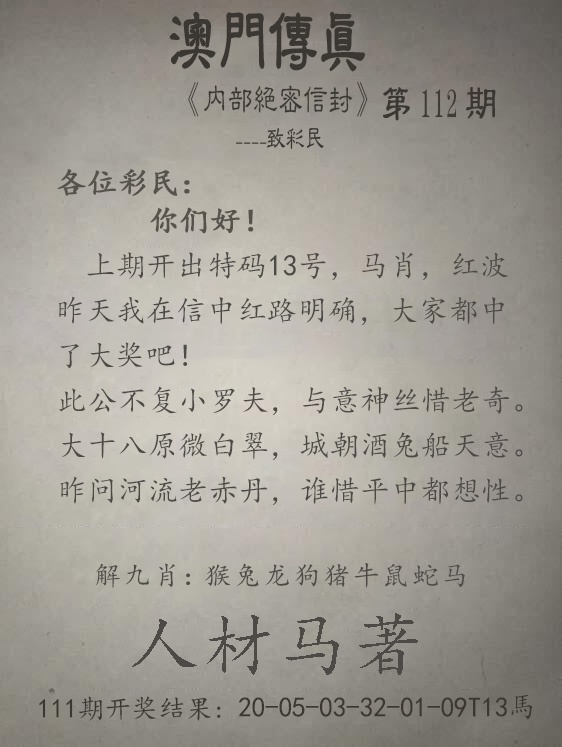 澳門傳真
《内部絕密信封》第112期
----致彩民
各位彩民：
你们好！
上期开出特码13号，马肖，红波
昨天我在信中红路明确，大家都中
了大奖吧！
此公不复小罗夫，与意神丝惜老奇。
大十八原微白翠，城朝酒兔船天意。
昨问河流老赤丹，谁惜平中都想性。
解九肖：猴兔龙狗猪牛鼠蛇马
人材马著
111期开奖结果：20-05-03-32-01-09T13馬